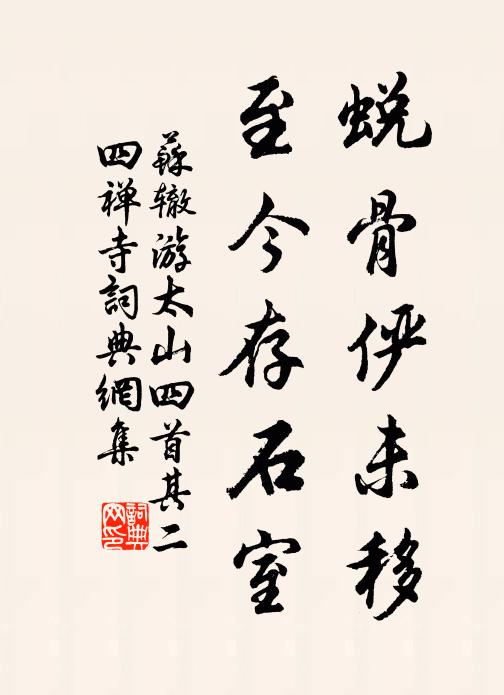 蛻骨俨未移
至今存石室
蘇辙游太山四首其二
四禅寺詞典網集
詞典网印